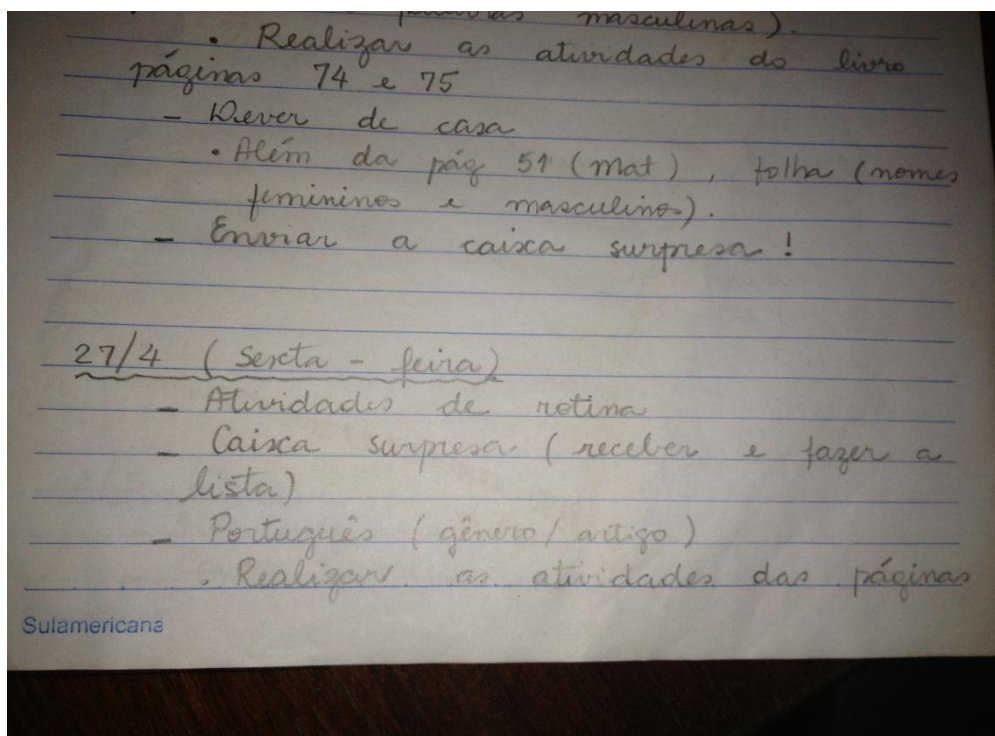 palavras masculinas).
• Realizar as atividades do livro
páginas 74 e 75
- Dever de casa
• Além da pág 51 (mat), folha (nomes
femininos e masculinos).
- Enviar a caixa surpresa!
27/4 (Sexta-feira)
- Atividades de rotina
- Caixa surpresa (receber e fazer a
lista)
- Português (gênero/artigo)
. Realizar as atividades das páginas
Sulamericana